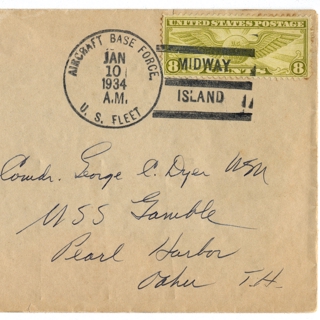 AIRCRAFT BASE FORCE
JAN
10
1934
A.M.
U. S. FLEET
UNITED STATES POSTAGE
8 CENTS 8
MIDWAY
ISLAND
Comdr. George C. Dyer USN
USS Gamble
Pearl Harbor
Oahu T.H.